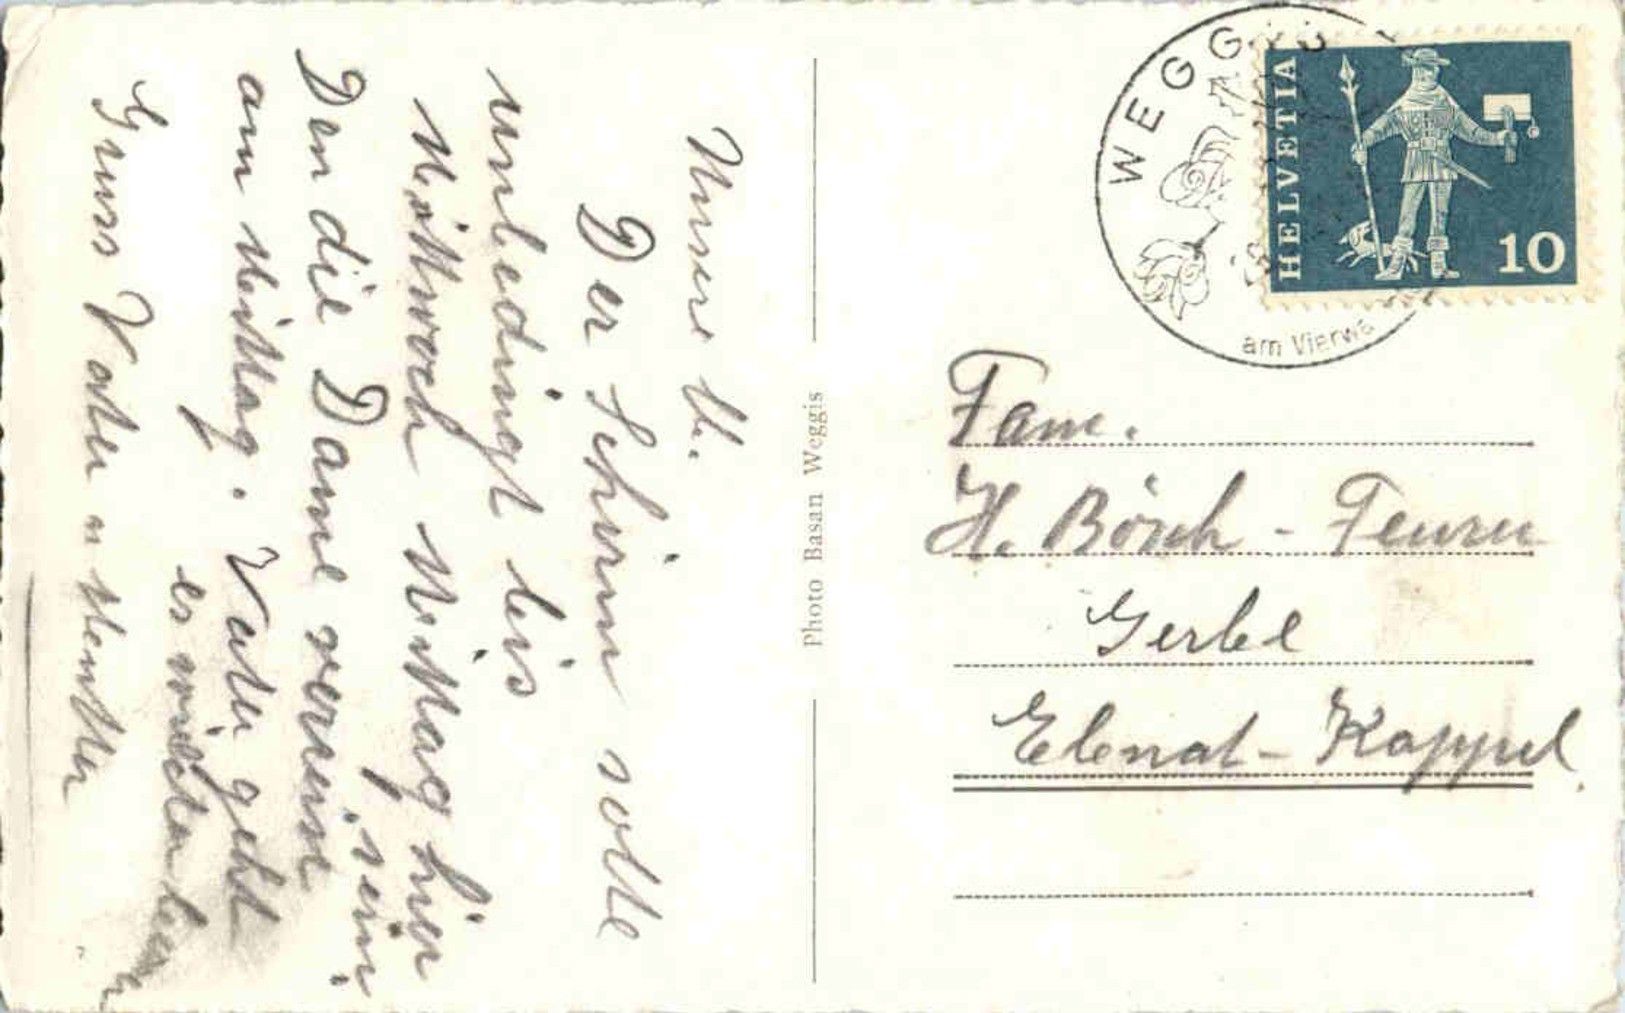 Unsere l.
Der Schirm sollte
unbedingt bis
Mittwoch Mittag hier
sein
Den die Dame verreist
am Mittag. Vater geht
es wieder
Gruss Vater u Mutter
Photo Basan Weggis
WEGGIS
am Vierwa
HELVETIA
10
Fam.
H. Bösch - Feurer
Gerbel
Ebnat - Kappel